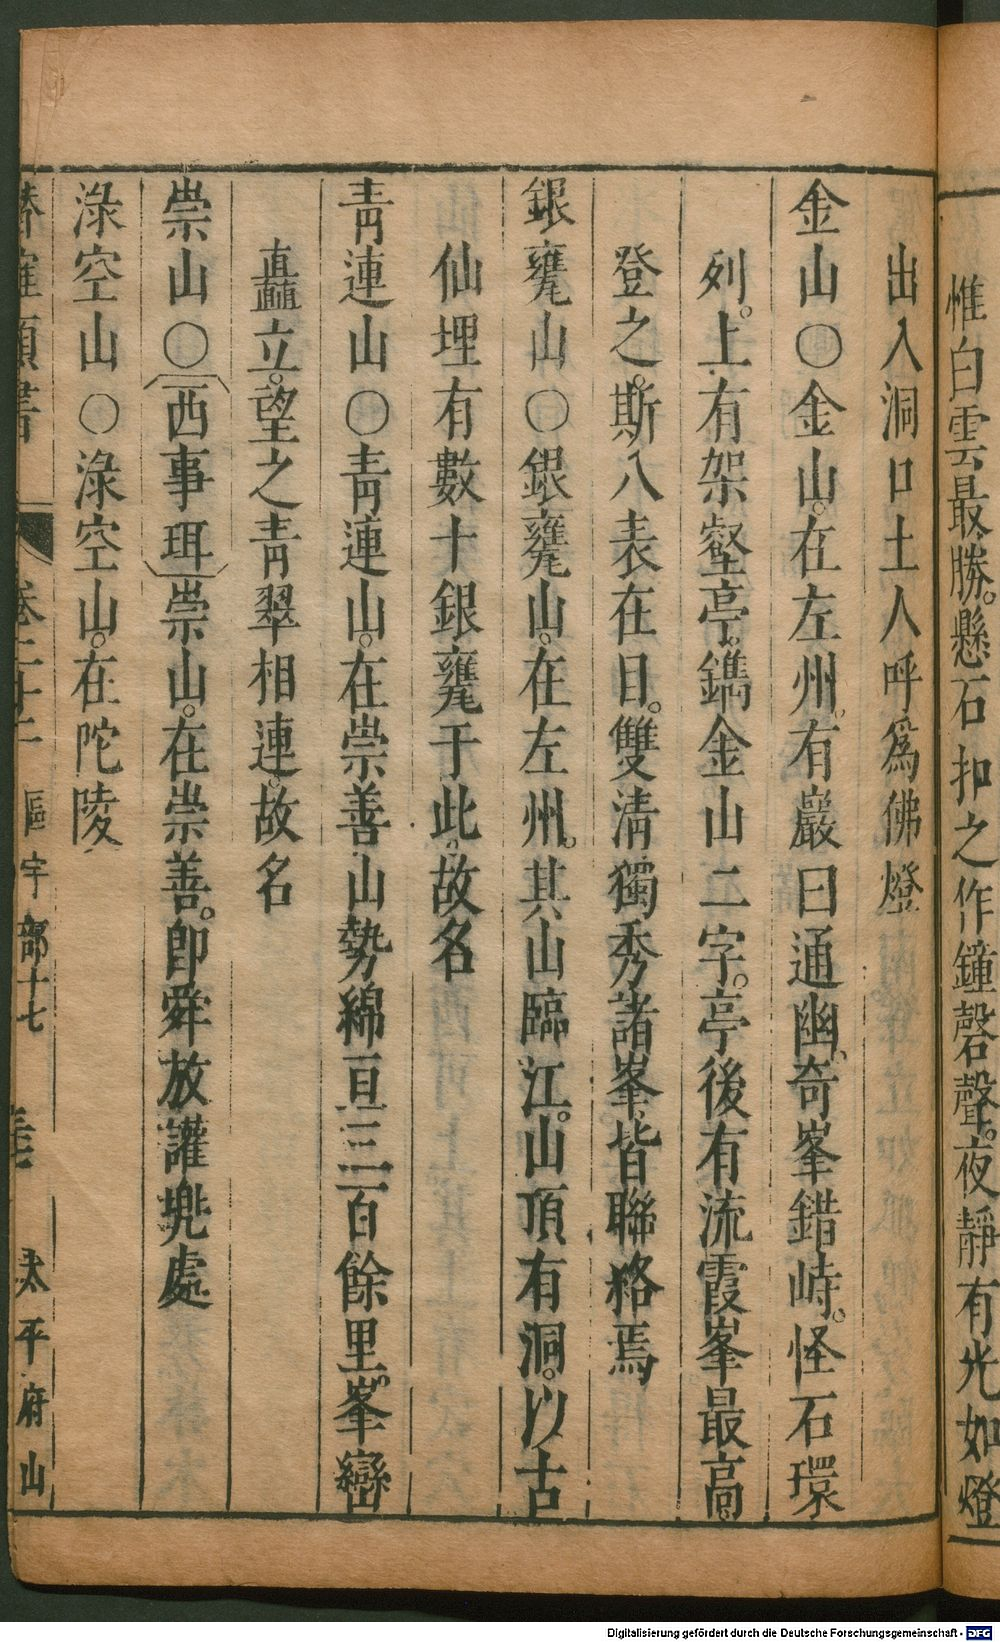 惟白雲最勝。懸石扣之作鐘磬聲。夜靜有光如燈
出入洞口土人呼為佛燈
金山○金山。在左州。有巖曰通幽、奇峯錯峙。怪石環
列。上有架壑亭。鐫金山二字。亭後有流霞峯最高。
登之。斯八表在目。雙清獨秀諸峯、皆聯絡焉
銀甕山○銀甕山。在左州。其山臨江。山頂有洞。以古
仙埋有數十銀甕于此。故名
青連山○青連山。在崇善山勢綿亘三百餘里。峯巒
矗立。望之青翠相連。故名
崇山○〔西事珥〕崇山。在崇善。卽舜放讙兠處
淥空山○淥空山。在陀陵
潛確類書 卷二十二 區宇部十七 太平府山
Digitalisierung gefördert durch die Deutsche Forschungsgemeinschaft - DFG